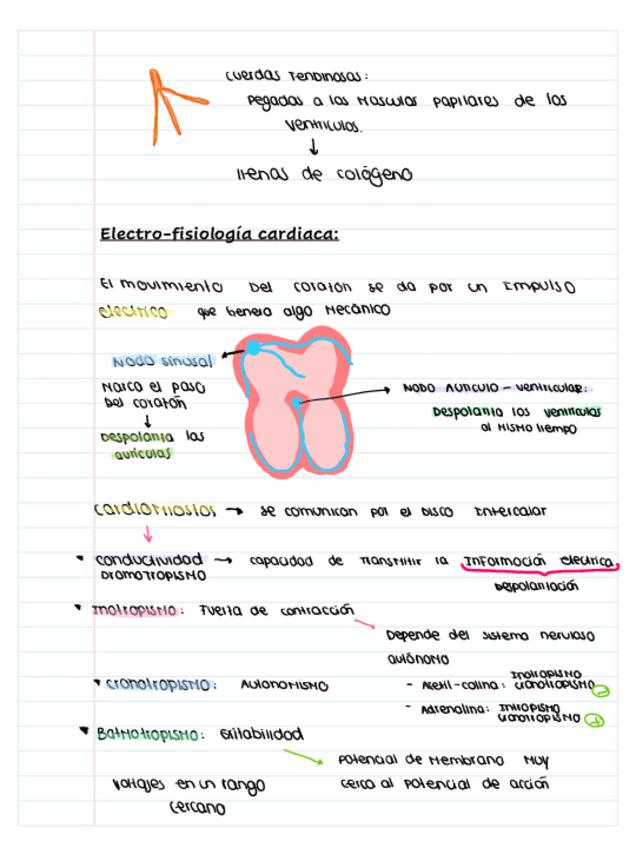 Cuerdas Tendinosas:
Pegadas a los Musculos papilares de los
ventriculos.
↓
llenas de colágeno
Electro-fisiología cardiaca:
El movimiento Del corazón se da por un Impulso
electrico que genera algo Mecánico
Nodo sinusal
Marca el paso
Del corazón
↓
Despolariza las
auriculas
NODO AURICULO - ventricular:
Despolariza los ventriculos
al MISMO tiempo
cardiomiositos → se comunican por el Disco Intercalar
• conductividad → capacidad de Transmitir la Información electrica
DROMOTROPISMO
Despolarización
• Inotropismo: Fuerza de contracción
Depende del sistema nervioso
autónomo
• CRONOTROPISMO: AUTONOMISMO
- Acetil-colina: Inotropismo
cronotropismo -
- Adrenalina: INTROPISMO
cronotropismo +
• Batmotropismo: Exitabilidad
Potencial de Membrana Muy
cerca al Potencial de acción
Voltajes en un rango
cercano